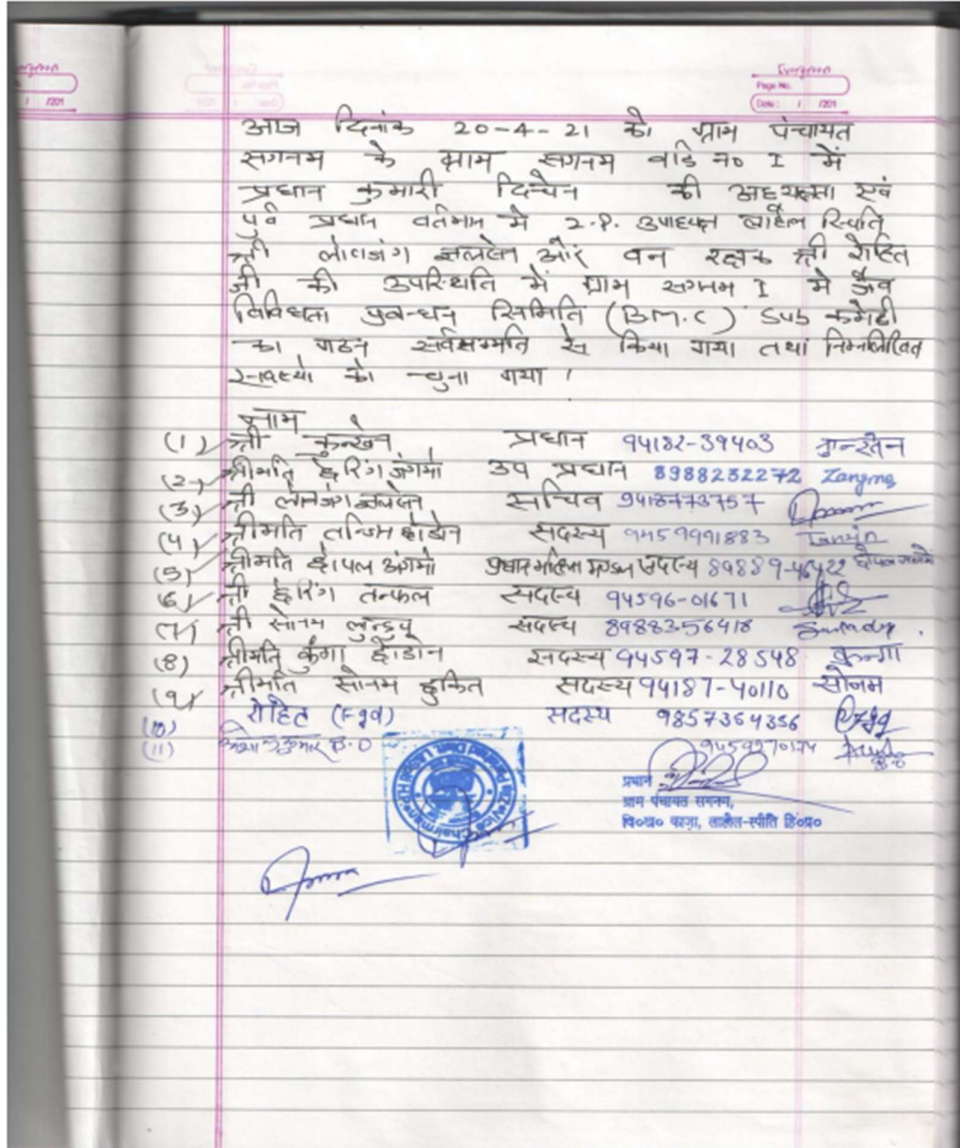 Evergreen
Page No.
Date : / /201
आज दिनांक 20-4-21 को ग्राम पंचायत
सगनम के ग्राम सगनम वार्ड न० I में
प्रधान कुमारी की अध्यक्षता एवं
पुर्व प्रधान वर्तमान में Z.P. उपाध्यक्ष लाहौल स्पिति
श्री लोवजंग और वन रक्षक श्री रोहित
जी की उपस्थिति में ग्राम सगनम I मे जैव
विविधता प्रबन्धन समिति (B.M.C) Sub कमेटी
का गठन सर्वसम्मति से किया गया तथा निम्नलिखित
सदस्यो को चुना गया ।
नाम
(1) श्री प्रधान 94182-39403
(2) श्रीमति छेरिंग जंगमो उप प्रधान 8988232272 Zangmo
(3) श्री सचिव 9418773757
(4) श्रीमति तन्जिन छोडोन सदस्य 9459991883 Tanzin
(5) श्रीमति अंगमो प्रधान महिला मण्डल सदस्य
(6) श्री छेरिंग तन्फल सदस्य 94596-01671
(7) श्री सोनम सदस्य 8988356418
(8) श्रीमति कुंगा छोडोन सदस्य 94597-28548 कुन्गा
(9) श्रीमति सोनम सदस्य 94187-40110 सोनम
(10) रोहित (Fgd) सदस्य 9857364356
(11) कुमार B.O 9459270174
प्रधान
ग्राम पंचायत सगनम,
वि०ख० काज़ा, लाहौल-स्पीति हि०प्र०